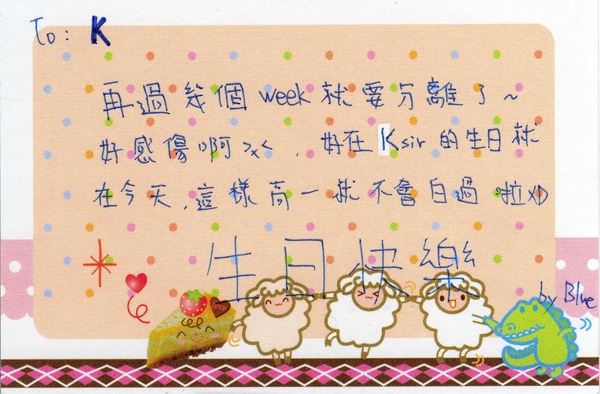 To: K
再過幾個week就要分離了~
好感傷啊>x<, 好在Ksir的生日就
在今天,這樣高一就不會白過啦XD
生日快樂
by Blue